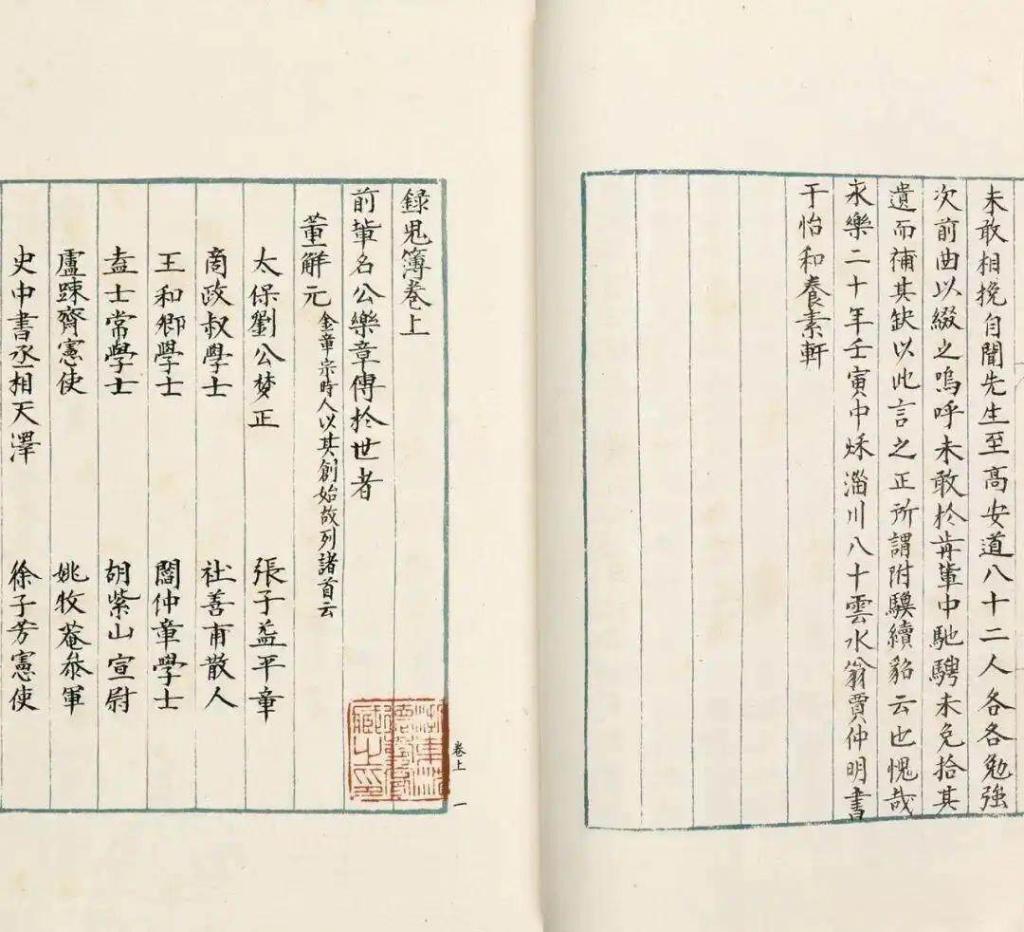 未敢相挽自關先生至高安道八十二人各各勉強
次前曲以綴之嗚呼未敢於前輩中馳騁未免拾其
遺而補其缺以此言之正所謂附驥續貂云也愧哉
永樂二十年壬寅中秌淄川八十雲水翁賈仲明書
于怡和養素軒
録鬼簿卷上
前軰名公樂章傳於世者
董解元 金章宗時人以其創始故列諸首云
太保劉公梦正 張子益平章
商政叔學士 社善甫散人
王和卿學士 閻仲章學士
盍士常學士 胡紫山宣尉
盧踈齋憲使 姚牧菴叅軍
史中書丞相天澤 徐子芳憲使
卷上 一